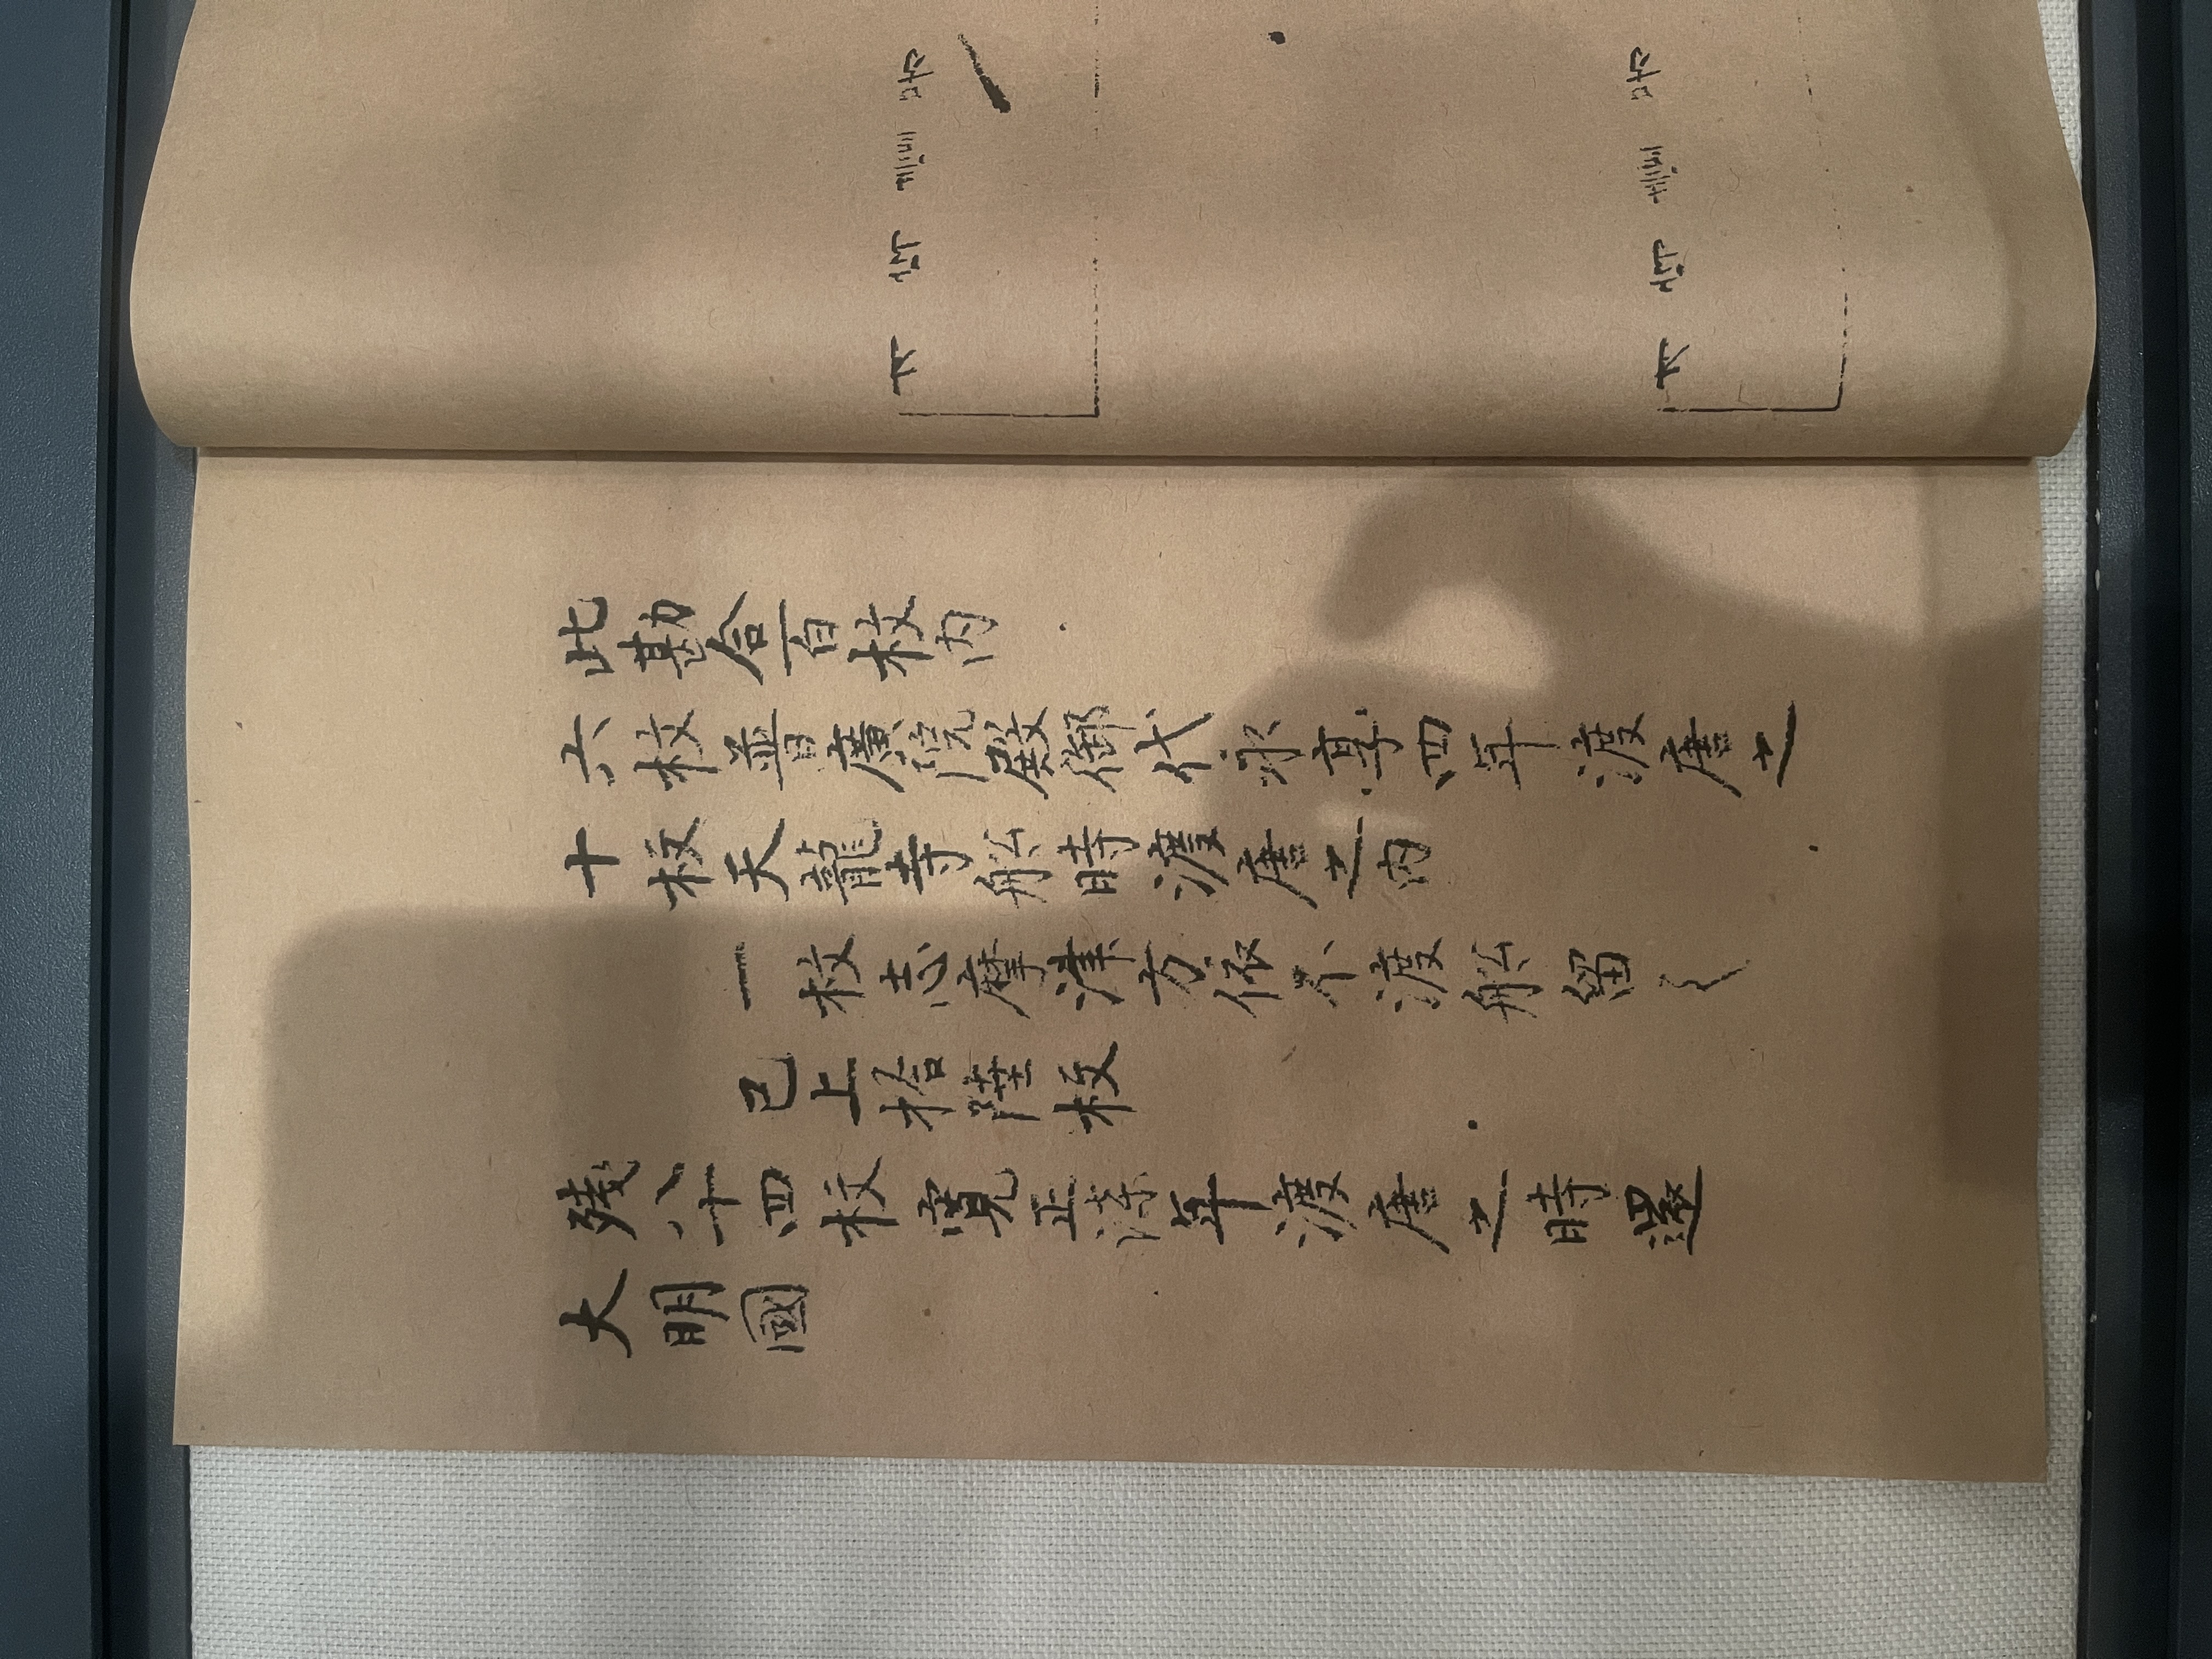 此勘合百枚内
六枚普廣院殿御代永享四年渡唐之
十枚天龍寺舩時渡唐之内
一枚志摩津方依不渡舩留之
已上拾陸枚
残八十四枚寛正年渡唐之時還
大明國